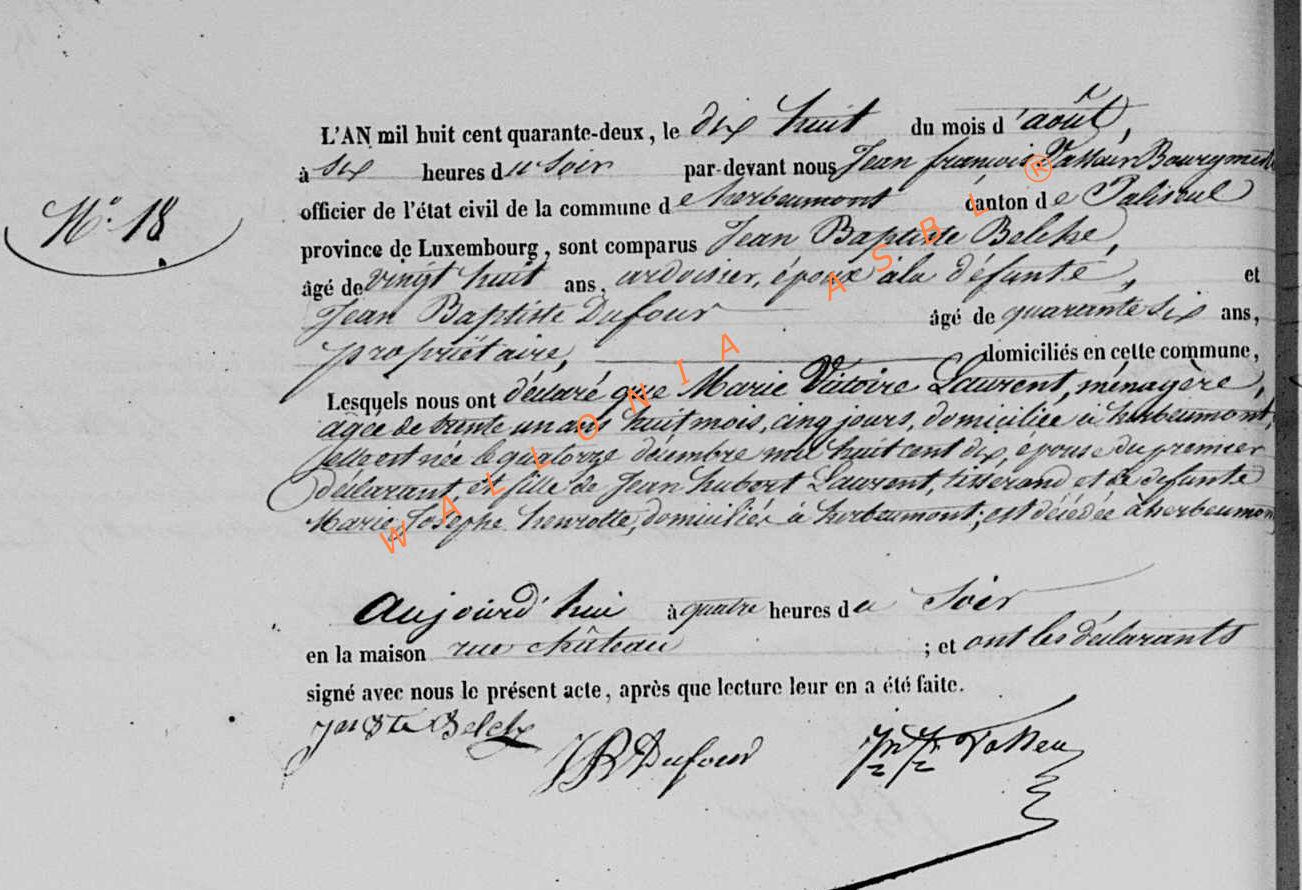 L'AN mil huit cent quarante-deux, le dix huit du mois d'août,
à six heures du soir par-devant nous Jean françois Bourgmest
officier de l'état civil de la commune de herbeumont canton de Paliseul
N° 18
province de Luxembourg, sont comparus Jean Baptiste Belche,
âgé de vingt huit ans, ardoisier, époux à la défunte, et
Jean Baptiste Dufour âgé de quarante six ans,
propriétaire, domiciliés en cette commune,
Lesquels nous ont déclaré que Marie Victoire Laurent, ménagère,
agée de trente un ans huit mois, cinq jours, domiciliée à herbeumont,
elle est née le quatorze décembre mil huit cent dix, épouse du premier
déclarant, et fille de Jean hubert Laurent, tisserand et de défunte
Marie Josephe henrotte, domiciliés à herbeumont; est décédée à herbeumon
Aujourd'hui à quatre heures du Soir
en la maison rue château ; et ont les déclarants
signé avec nous le présent acte, après que lecture leur en a été faite.
JB Dufour
WALLONIA ASBL ®